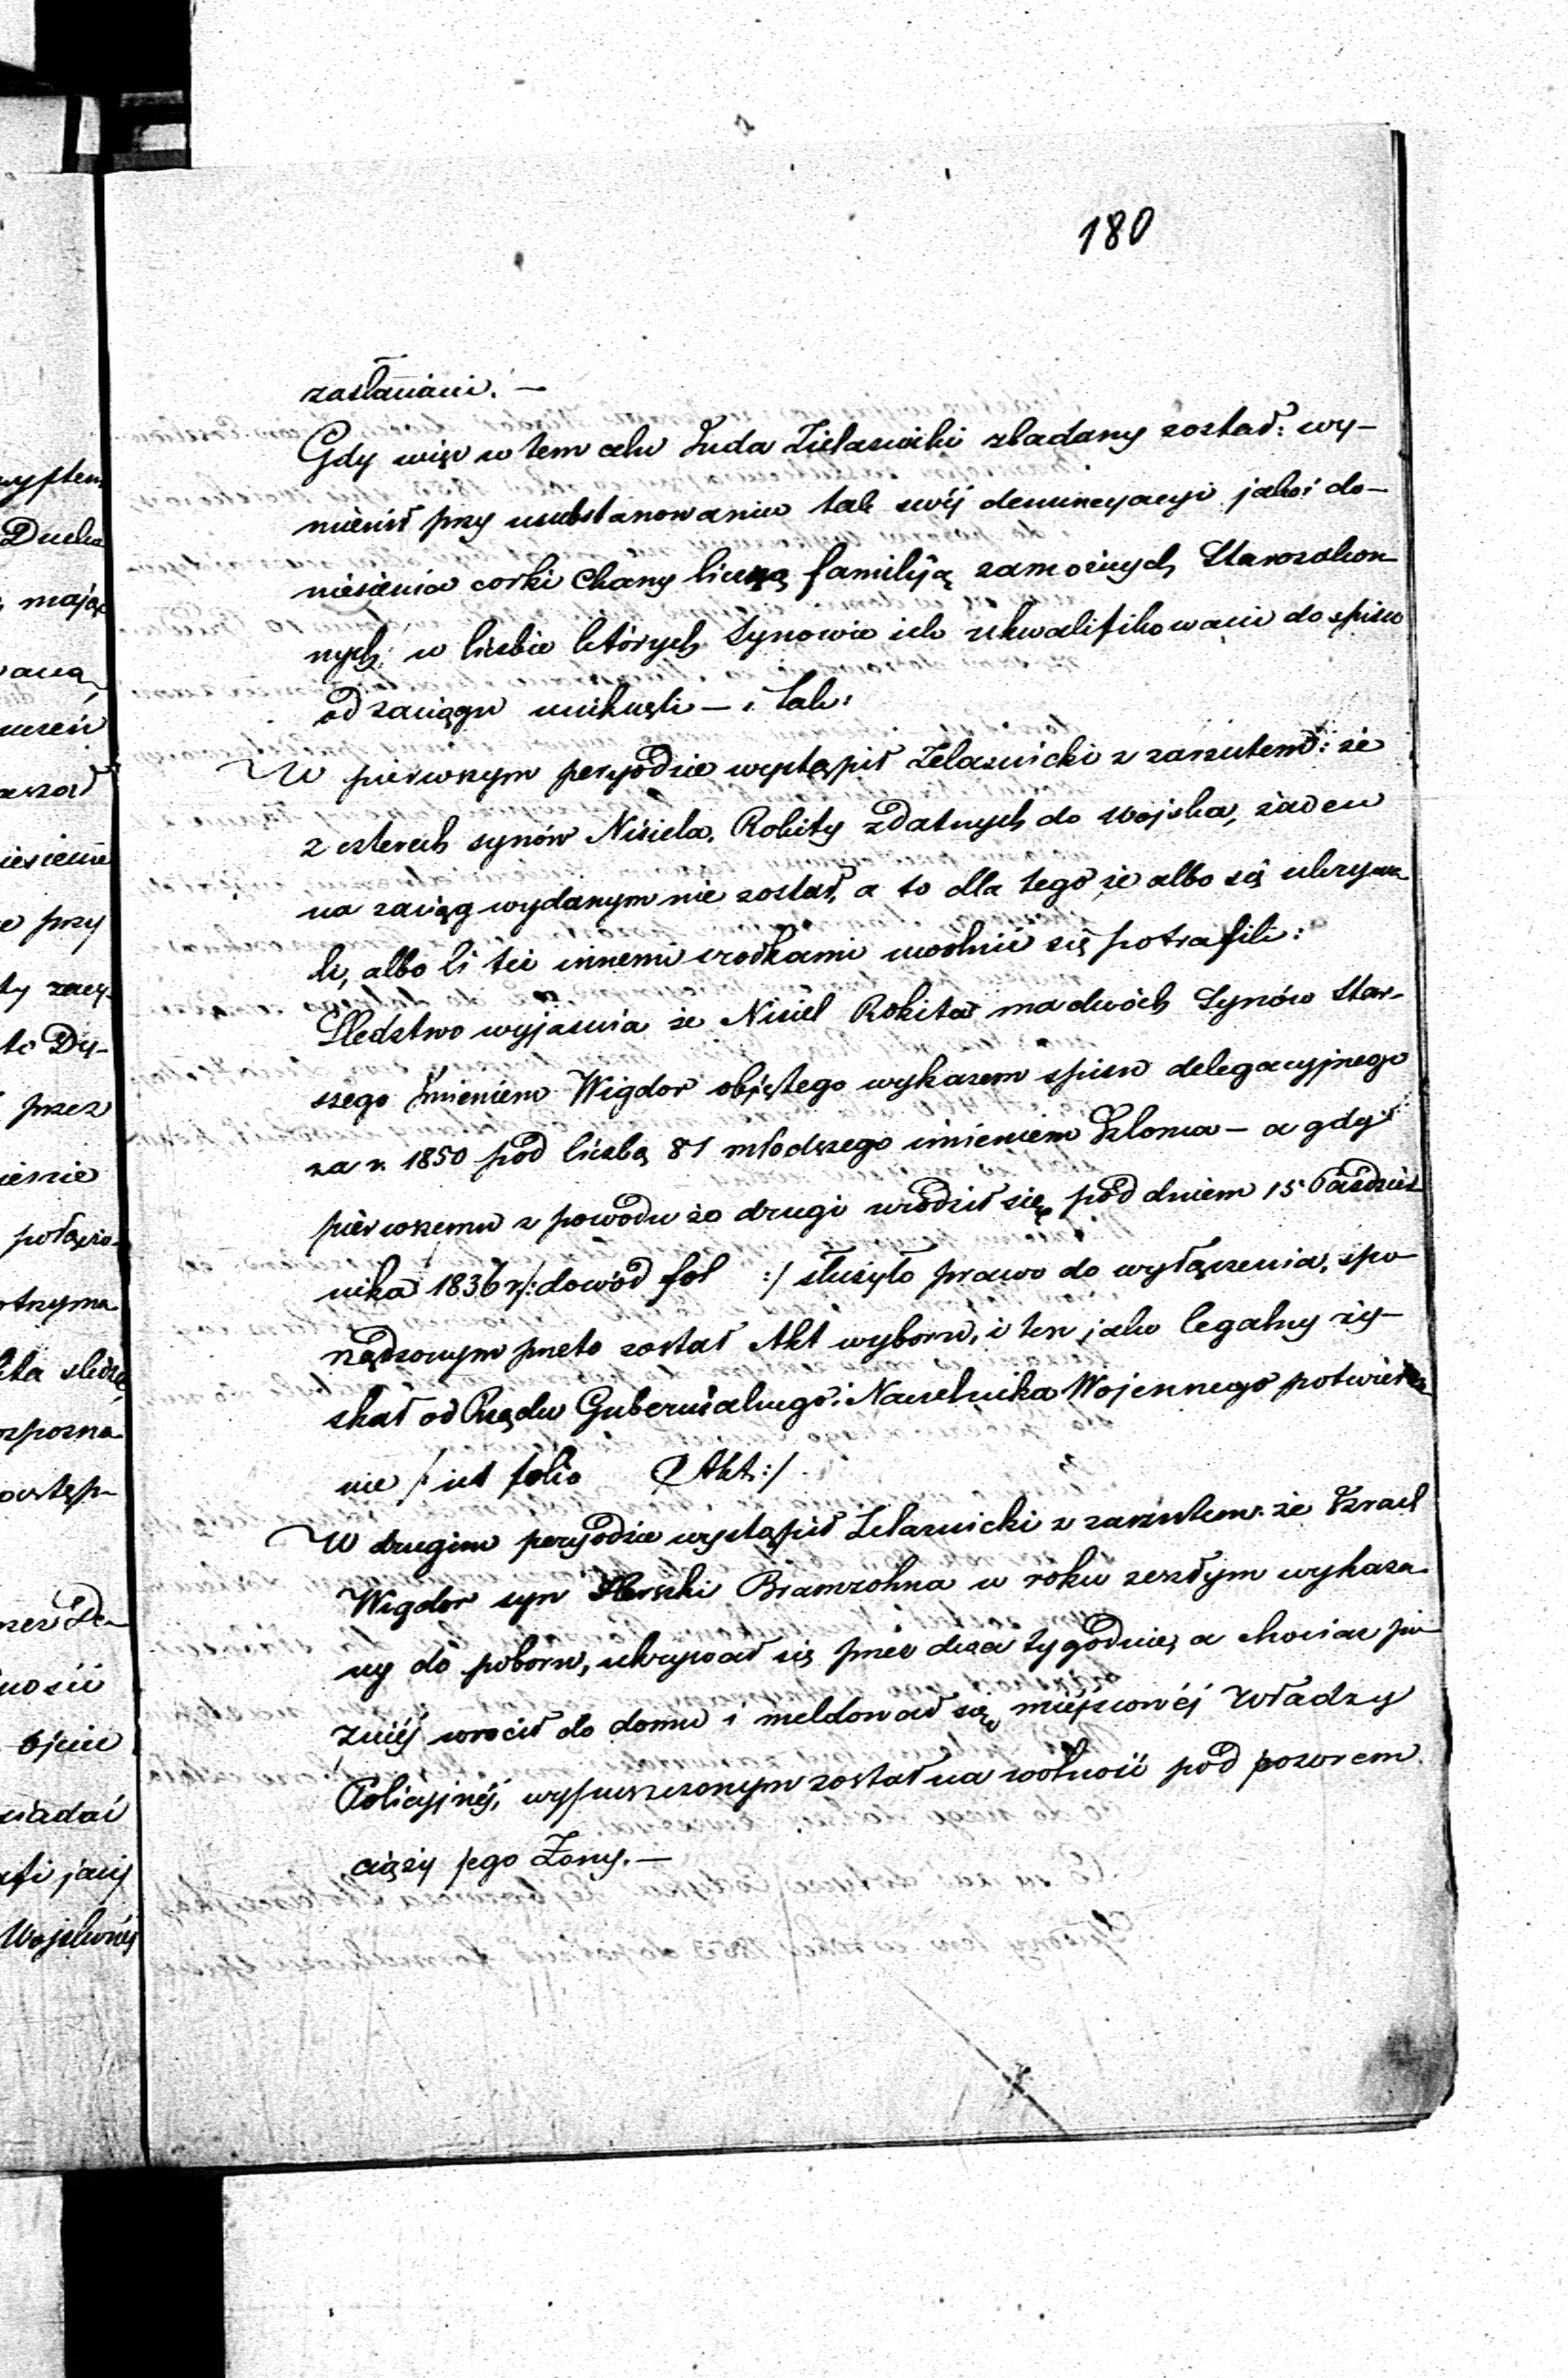 180
zasłaniani. —
Gdy więc w tem celu Juda Zielaznicki zbadany został: wy-
mienił przy usubstanowaniu tak swéj denuncyacyi jako i do-
niesienia corki Chany liczną familiją zamożnych Starozakon
nych; w liczbie których Synowie ich zkwalifikowani do spisu
od zaciągu uniknęli — i tak:
W pierwszym peryodzie wystąpił Zelaznicki z zarzutem: że
z czterech synów Nisiela Rokity zdatnych do Wojska, żaden
na zaciąg wydanym nie został, a to dla tego że albo się ukrywa
li, albo li też innemi srodkami uwolnić się potrafili:
Sledztwo wyjasnia że Nisiel Rokita ma dwóch Synów Star-
szego Imieniem Wigdor objętego wykazem spisu delegacyjnego
za r. 1850 pod liczbą 81 młodszego imieniem Szloma — a gdy
pierwszemu z powodu że drugi urodził się pod dniem 15 Paździer
nika 1836 r /: dowód fol :/ służyło prawo do wyłączenia, spo
rządzonym przeto został Akt wyboru, i ten jako legalny zy-
skał od Rządu Gubernialnego i Naczelnika Wojennego potwierdze
nie /: ut folio Akt :/
W drugim peryodzie wystąpił Zelaznicki z zarzutem że Izrael
Wigdor syn Herszki Bramzohna w roku zeszłym wykaza-
ny do poboru, ukrywał się przez dwa tygodnie, a chociaż pó
zniéj wrocił do domu i meldował się miejscowéj Władzy
Policyjnéj, wypuszczonym został na wolność pod pozorem
ciąży jego Żony. —
mając
przy
przez
Wojskowéj